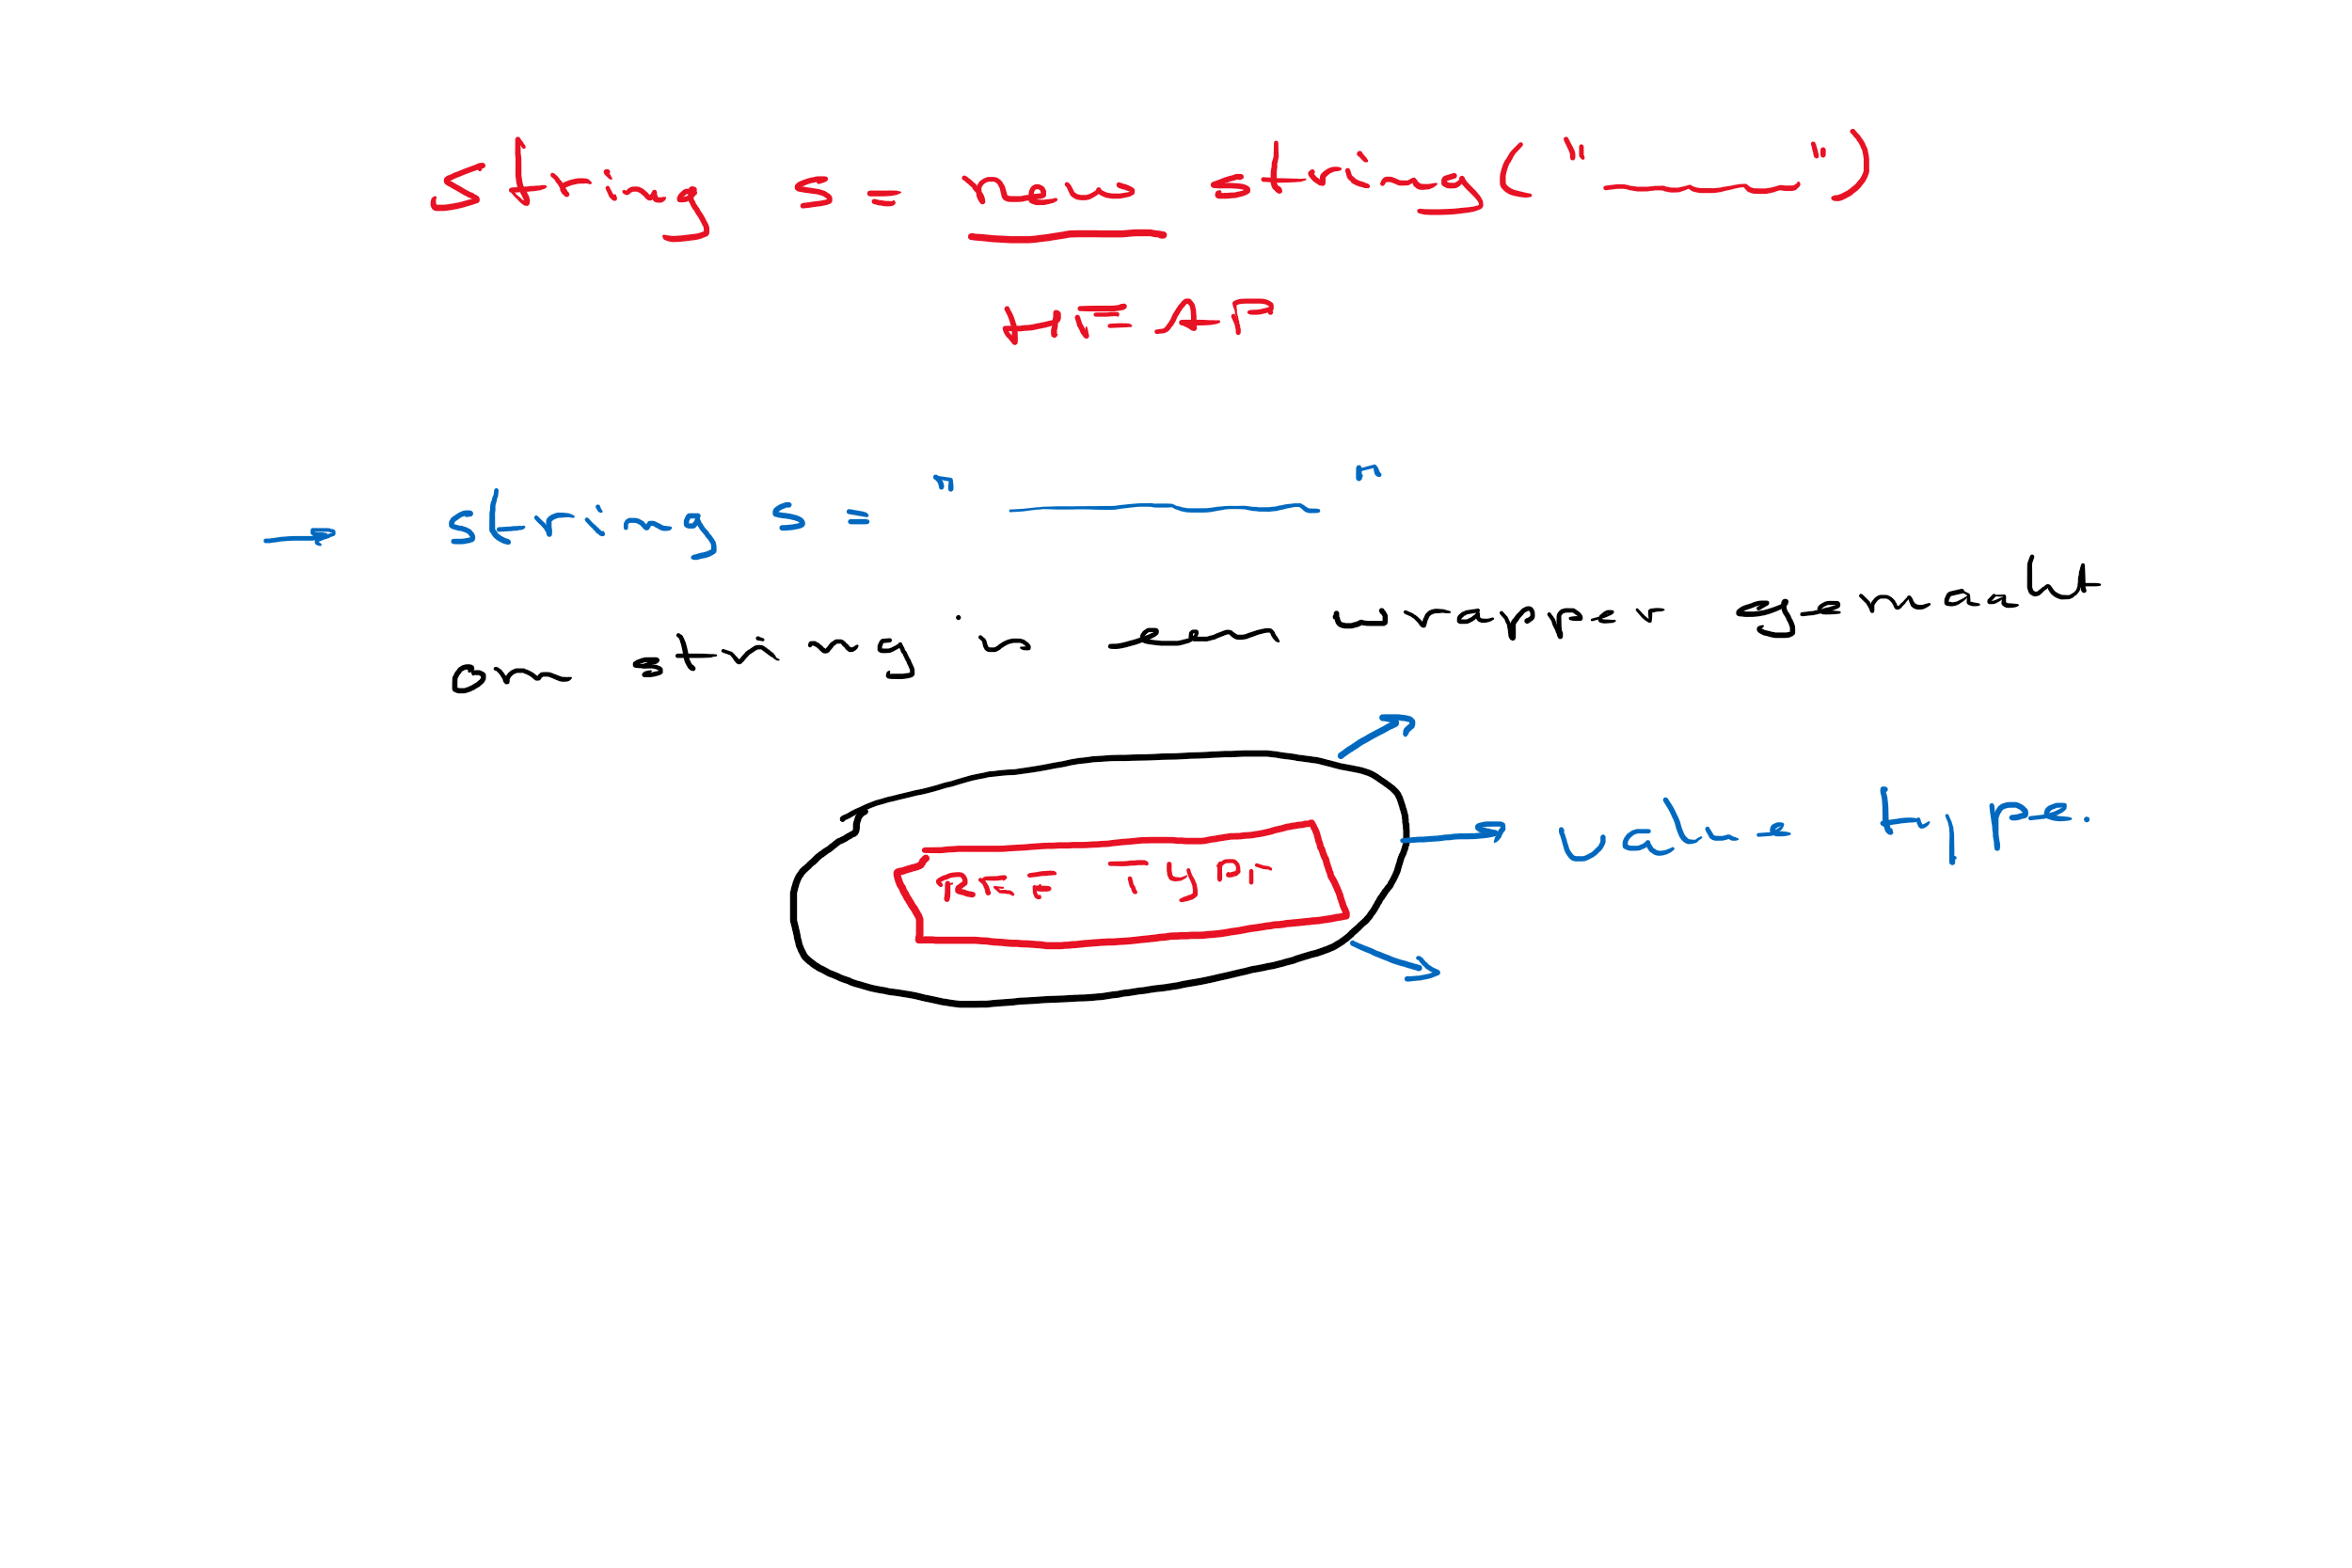 string s = new string( " ——— " )
HEAP
→ string s = " ——— "
om string is een wrapper gemaakt
REF Type
value type.